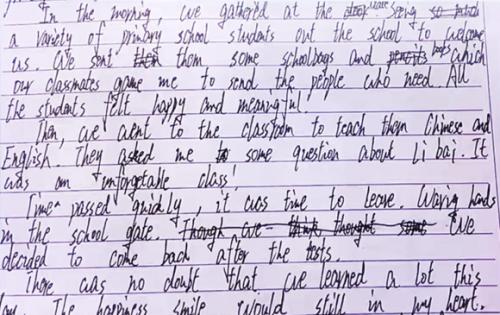 In the morning, we gathered at the seeing
a variety of primary school students out the school to welcome
us. We sent them some schoolbags and which
our classmates game me to send the people who need. All
the students felt happy and meaningful.
Then, we went to the classroom to teach them Chinese and
English. They asked me some question about Li bai. It
was an unforgetable class!
Time passed quickly, it was time to leave. Waving hands
in the school gate. Though we think thought some We
decided to come back after the tests.
There was no doubt that we learned a lot this
day. The happiness smile would still in my heart.